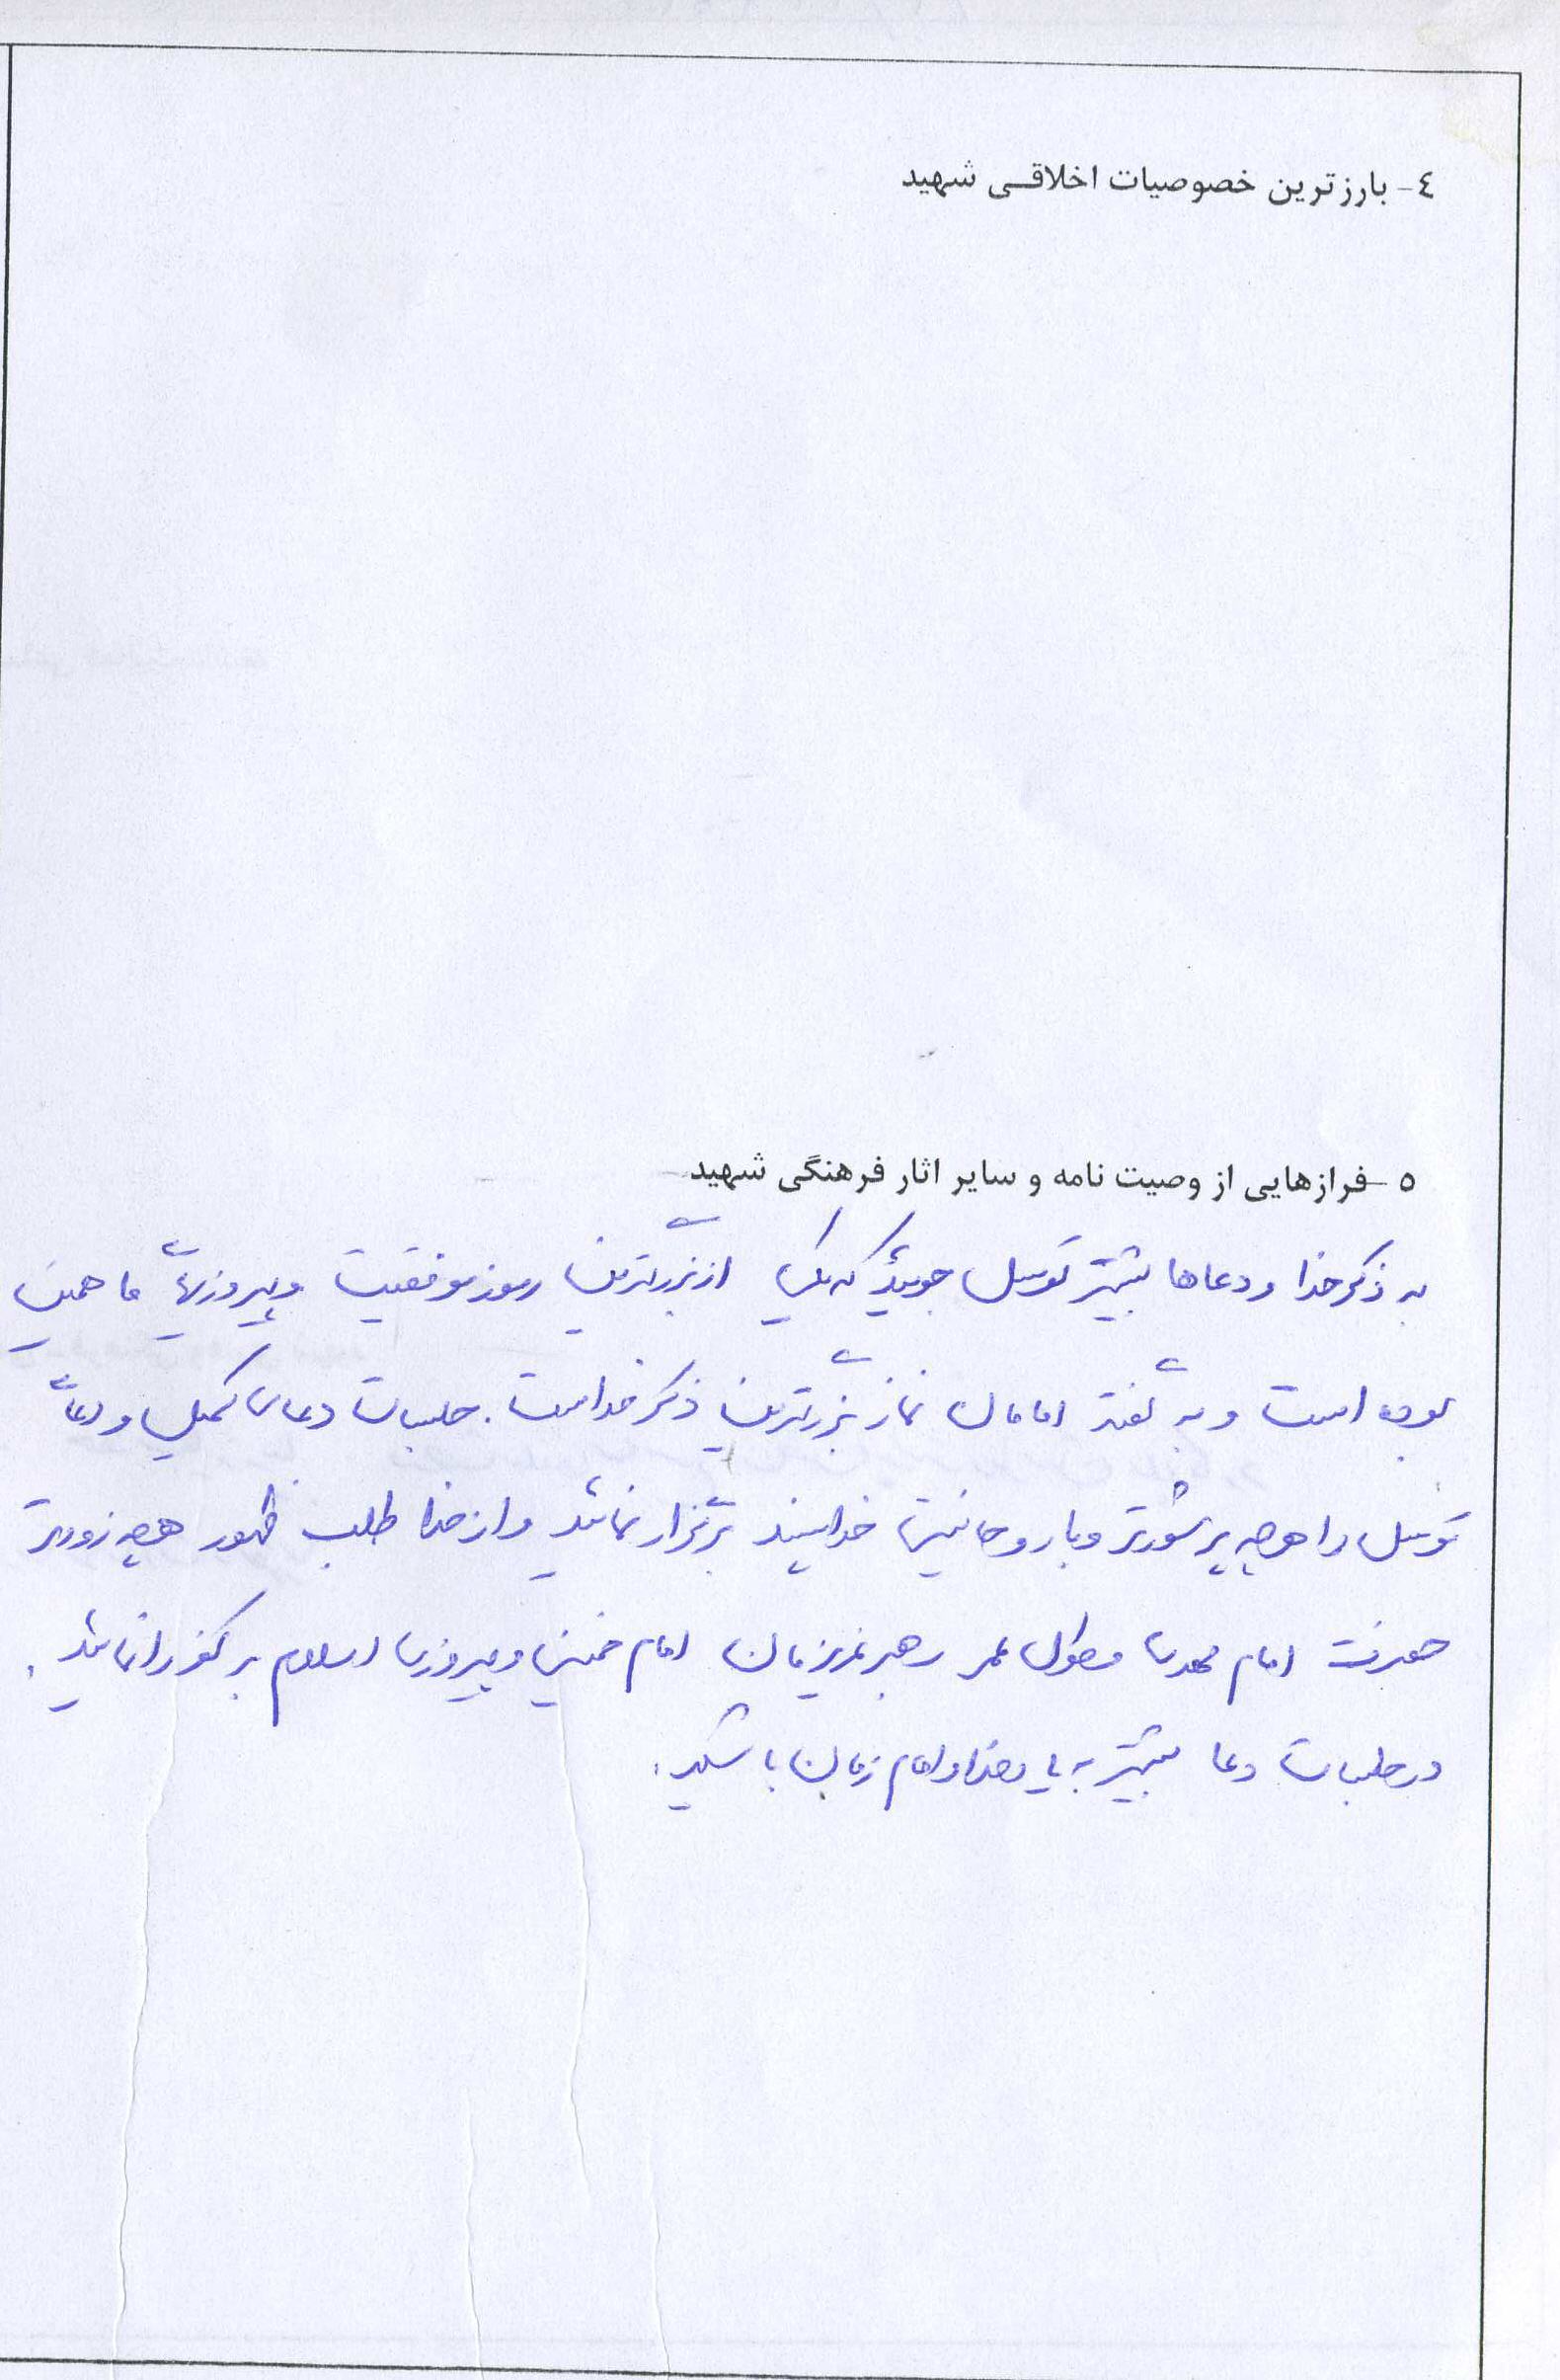 ٤- بارزترین خصوصیات اخلاقی شهید
٥- فرازهایی از وصیت نامه و سایر اثار فرهنگی شهید
به ذکر خدا و دعاها بیشتر توسل جویید که یکی از بزرگترین رموز موفقیت و پیروزیهای ما همین
بوده است و به گفته امامان نماز بزرگترین ذکر خداست. جلسات دعای کمیل و دعای
توسل را هرچه پرشورتر و با روحانیت خداپسند برگزار نمائید و از خدا طلب ظهور هرچه زودتر
حضرت امام مهدی و طول عمر رهبر عزیزمان امام خمینی و پیروزی اسلام بر کفر را نمائید.
در جلسات دعا بیشتر به یاد خدا و امام زمان باشید.